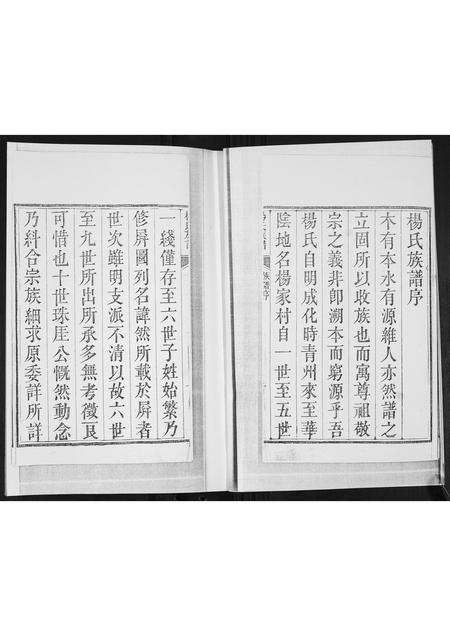 楊氏族譜序
木有本水有源維人亦然譜之
立固所以收族也而寓尊祖敬
宗之義非卽溯本而窮源乎吾
楊氏自明成化時青州來至華
陰地名楊家村自一世至五世
族譜序
一綫僅存至六世子姓始繁乃
修屏圖列名諱然所載於屏者
世次雖明支派不清以故六世
至九世所出所承多無考徵良
可惜也十世珠厓公慨然動念
乃糾合宗族細求原委詳所詳